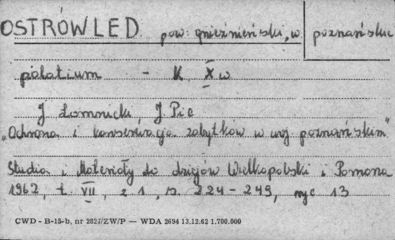 OSTRÓW LED. pow. gnieźnieński, w. poznańskie
palatium - K. X w
J. Łomnicki, J. Pic
"Ochrona i konserwacja zabytków w woj. poznańskim"
Studia i Materiały do dziejów Wielkopolski i Pomorza
1962, t. VII, z 1, s. 224 - 249, ryc 13
CWD - B-15-b, nr 2827/ZW/P — WDA 2694 13.12.62 1.700.000